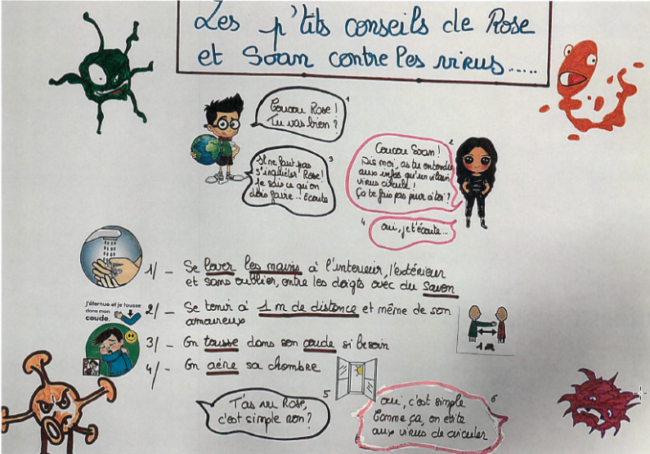 Les p'tits conseils de Rose
et Soan contre les virus.....
Coucou Rose !
Tu vas bien ?
1
Coucou Soan !
Dis moi, as tu entendu
aux infos qu'un vilain
virus circule !
Ça te fais pas peur à toi ?
2
Il ne faut pas
s'inquiéter Rose !
Je sais ce qu'on
dois faire... Ecoute
3
4
oui, je t'écoute...
1/ - Se laver les mains à l'interieur, l'extérieur
et sans oublier, entre les doigts avec du savon
J'éternue et je tousse
dans mon
coude.
2/ - Se tenir à 1 m de distance et même de son
amoureux
1 m
3/ - On tousse dans son coude si besoin
4/ - On aère sa chambre
T'as vu Rose,
c'est simple non ?
5
oui, c'est simple
Comme ça, on evite
aux virus de circuler
6